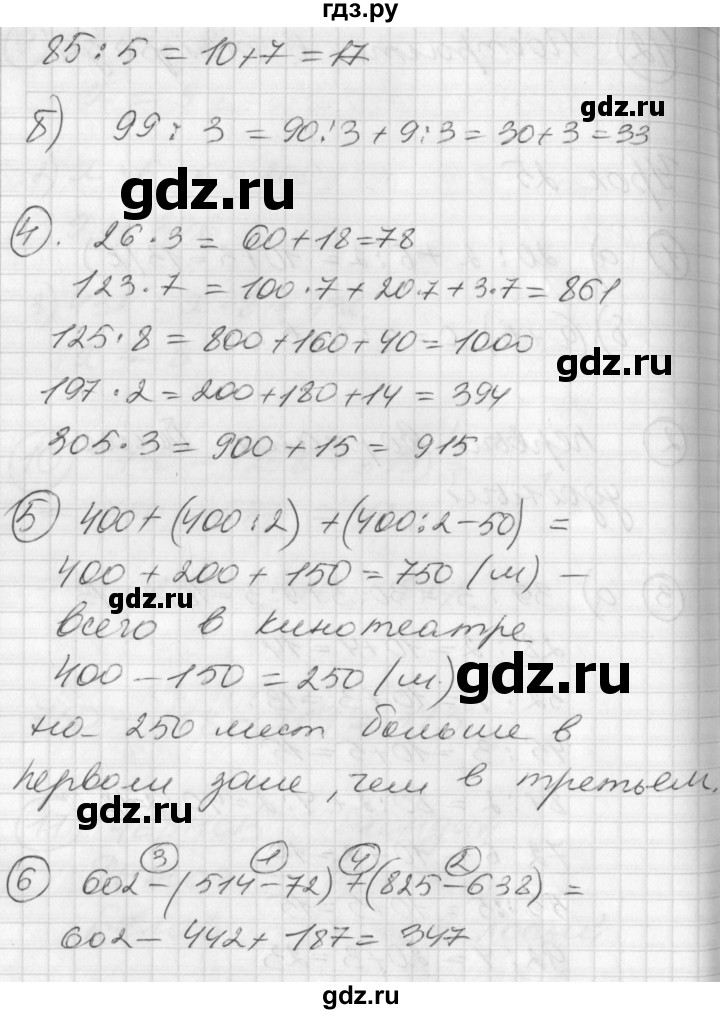 гдз.ру
85 : 5 = 10 + 7 = 17
gdz.ru
б) 99 : 3 = 90 : 3 + 9 : 3 = 30 + 3 = 33
gdz.ru
4. 26 · 3 = 60 + 18 = 78
123 · 7 = 100 · 7 + 20 · 7 + 3 · 7 = 861
125 · 8 = 800 + 160 + 40 = 1000
gdz.ru
197 · 2 = 200 + 180 + 14 = 394
305 · 3 = 900 + 15 = 915
5 400 + (400 : 2) + (400 : 2 - 50) =
400 + 200 + 150 = 750 (м) —
gdz.ru
всего в кинотеатре
400 - 150 = 250 (м.)
gdz.ru
на 250 мест больше в
первом зале, чем в третьем.
gdz.ru
3 1 4 2
6 602 - (514 - 72) + (825 - 638) =
602 - 442 + 187 = 347
gdz.ru